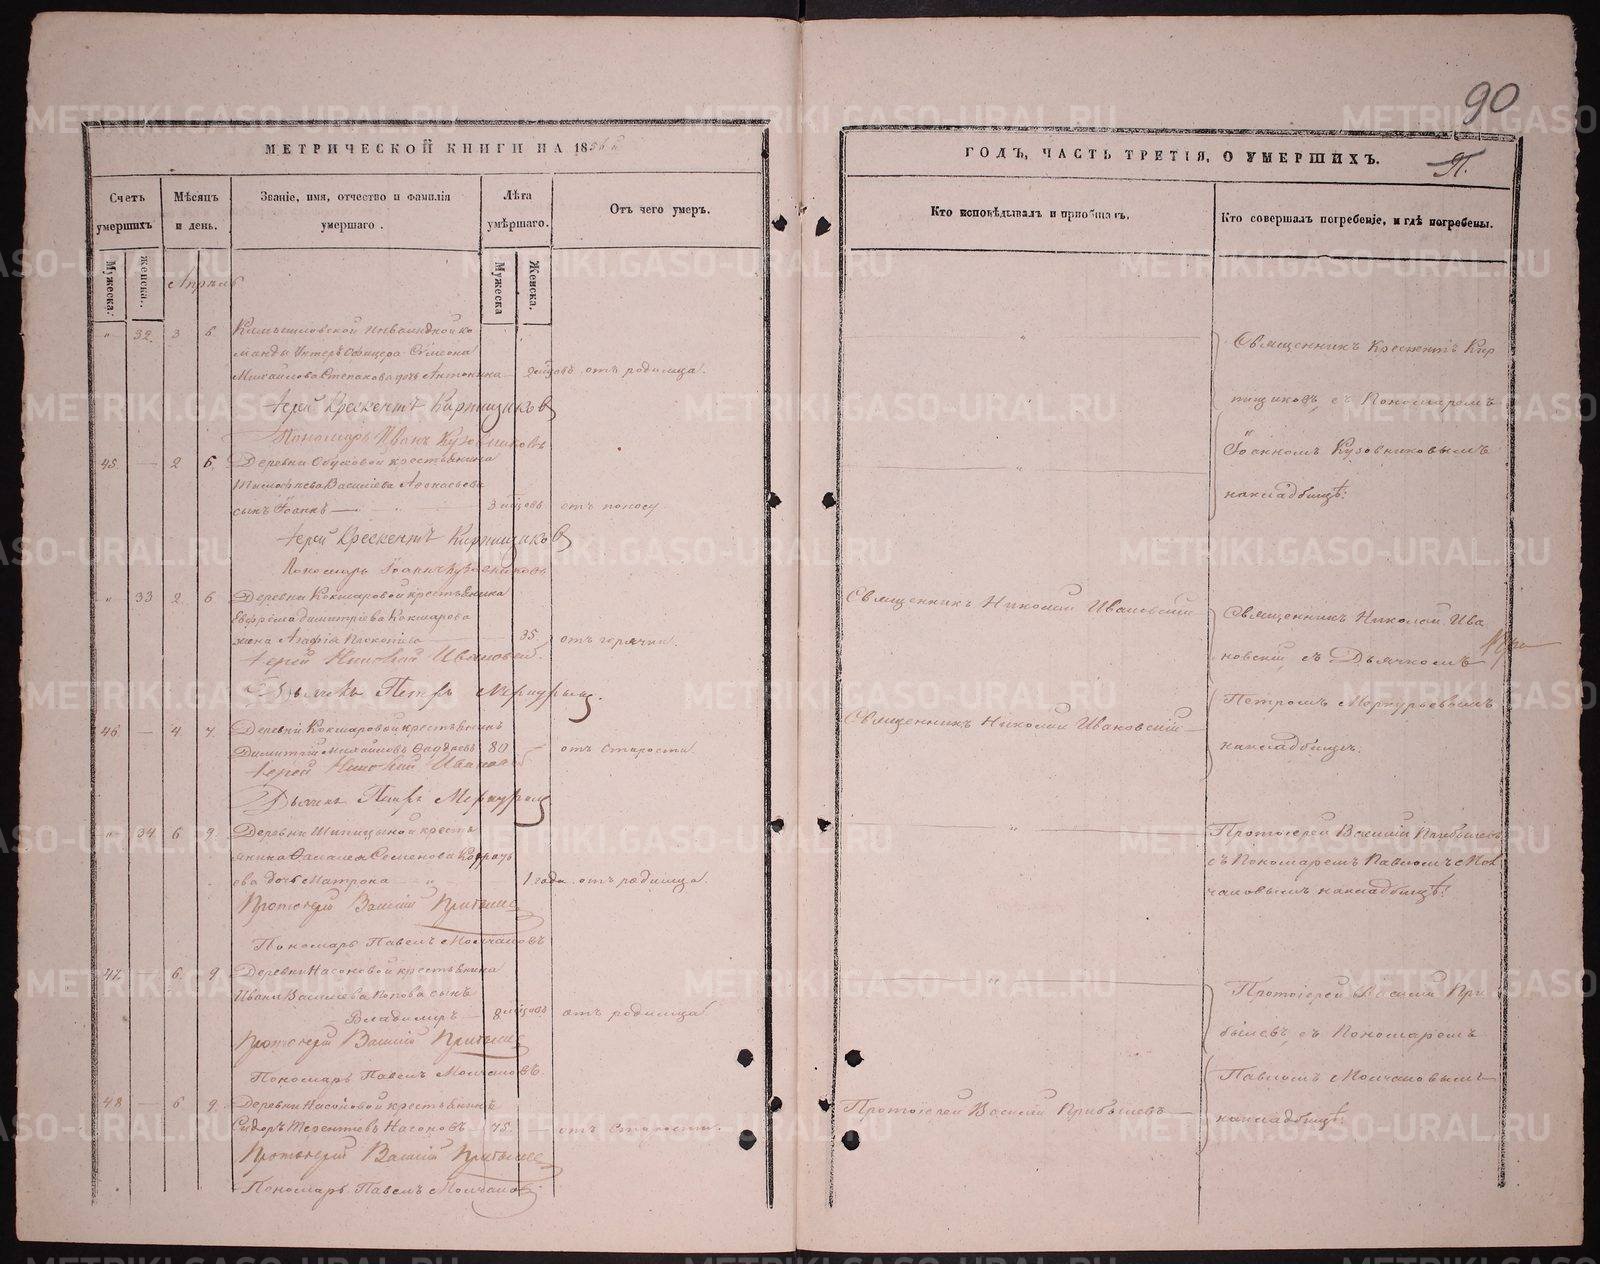 90
МЕТРИЧЕСКОЙ КНИГИ НА 18
ГОДЪ, ЧАСТЬ ТРЕТІЯ, О УМЕРШИХЪ.
Счетъ умершихъ
Мѣсяцъ и день.
Званіе, имя, отчество и фамилія умершаго.
Лѣта умѣршаго.
Отъ чего умеръ.
Кто исповѣдывалъ и пріобщалъ.
Кто совершалъ погребеніе, и гдѣ погребены.
Мужеска.
женска.
Мужеска
Женска.
Апрель
" 32 3 6 Камышловской Инвалидной ко
манды Унтеръ Офицера Сѵмеона
Михайлова Степакова дочь Антонина 2 мѣсяцъ отъ родимца.
Іерей Крескентъ Кирпищиковъ
Пономарь Иванъ Кузовниковъ
Священникъ Крескентъ Кир
пищиковъ, съ Пономаремъ
Іоанномъ Кузовниковымъ
накладбищѣ.
45 — 2 6. Деревни Обуховой крестьянина
Василіева Афонасьева
сынъ Іоаннъ — 3 мѣсяцъ отъ поносу
Іерей Крескентъ Кирпищиковъ
Пономарь Іоаннъ Кузовниковъ
" 33 2 6 Деревни Кокшаровой крестьянина
Ефрема Димитріева Кокшарова
жена Агафія Прокопіева 35 отъ горячки.
Іерей Николай Ивановскій.
Дьячекъ Петръ Меркурьевъ.
Священникъ Николай Ивановскій
Священникъ Николай Ива
новскій съ Дьячкомъ
Петромъ Меркурьевымъ
накладбищѣ.
46 — 4 7 Деревни Кокшаровой крестьянинъ
Димитрій Михайловъ Фаддеевъ 80 — отъ Старости
Іерей Николай Ивановскій
Дьячекъ Петръ Меркурьевъ
Священникъ Николай Ивановскій —
" 34 6 9 Деревни Шипицыной кресть
янина Семенова
ова дочь Матрона 1 года отъ родимца.
Протоіерей Василій Прибылевъ
Пономарь Павелъ Молчановъ
Протоіерей Василій Прибылевъ
съ Пономаремъ Павломъ Мол
чановымъ накладбищѣ.
47 — 6 9 Деревни Насоновой крестьянина
Ивана Василіева Попова сынъ
Владимиръ — 8 мѣсяцъ отъ родимца
Протоіерей Василій Прибылевъ
Пономарь Павелъ Молчановъ.
Протоіерей Василій При
былевъ, съ Пономаремъ
Павломъ Молчановымъ
накладбищѣ.
48 — 6 9 Деревни Насоновой крестьянинъ
Сидоръ Терентіевъ Насоновъ 75. — отъ Старости.
Протоіерей Василій Прибылевъ
Пономарь Павелъ Молчановъ
Протоіерей Василій Прибылевъ —
METRIKI.GASO-URAL.RU